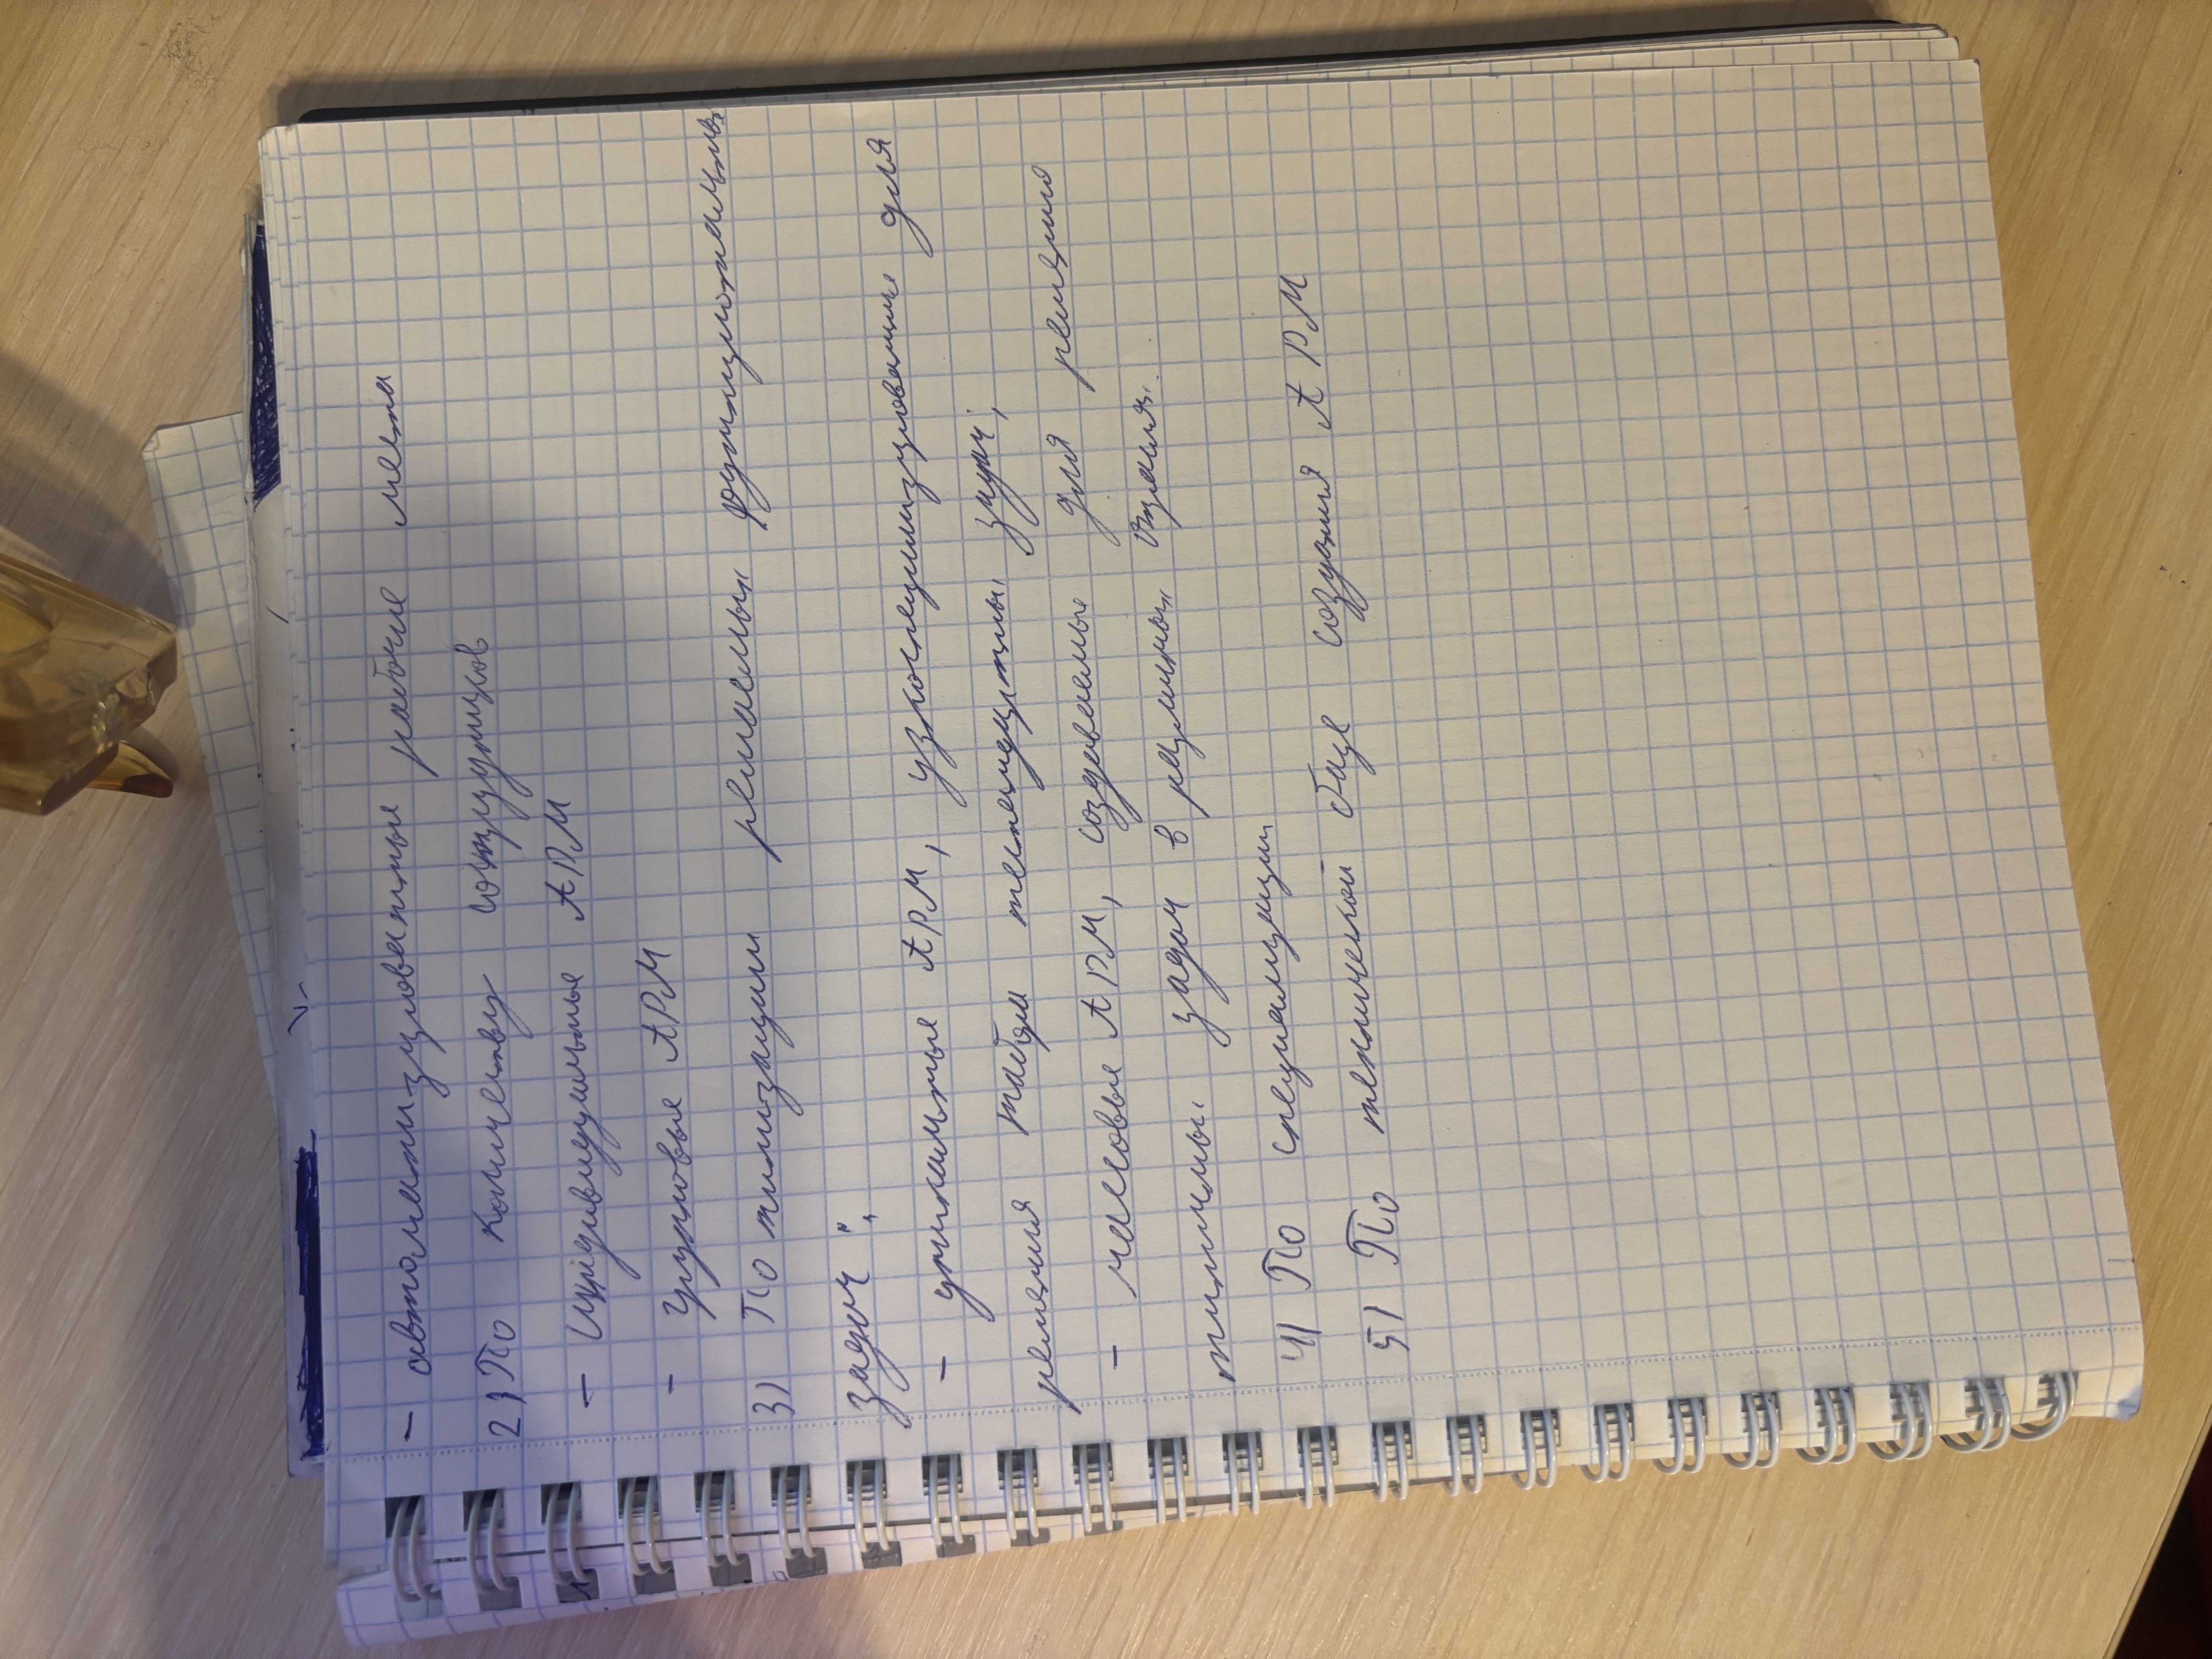 - автоматизированные рабочие места
2) По количеству сотрудников
- Индивидуальные АРМ
- Групповые АРМ
3) По типизации решаемых функциональных
задач:
- уникальные АРМ, узкоспециализированные для
решения таких нестандартных задач;
- массовые АРМ, создаваемые для решения
типичных задач в различных отраслях.
4) По специализации
5) По технической базе создания АРМ